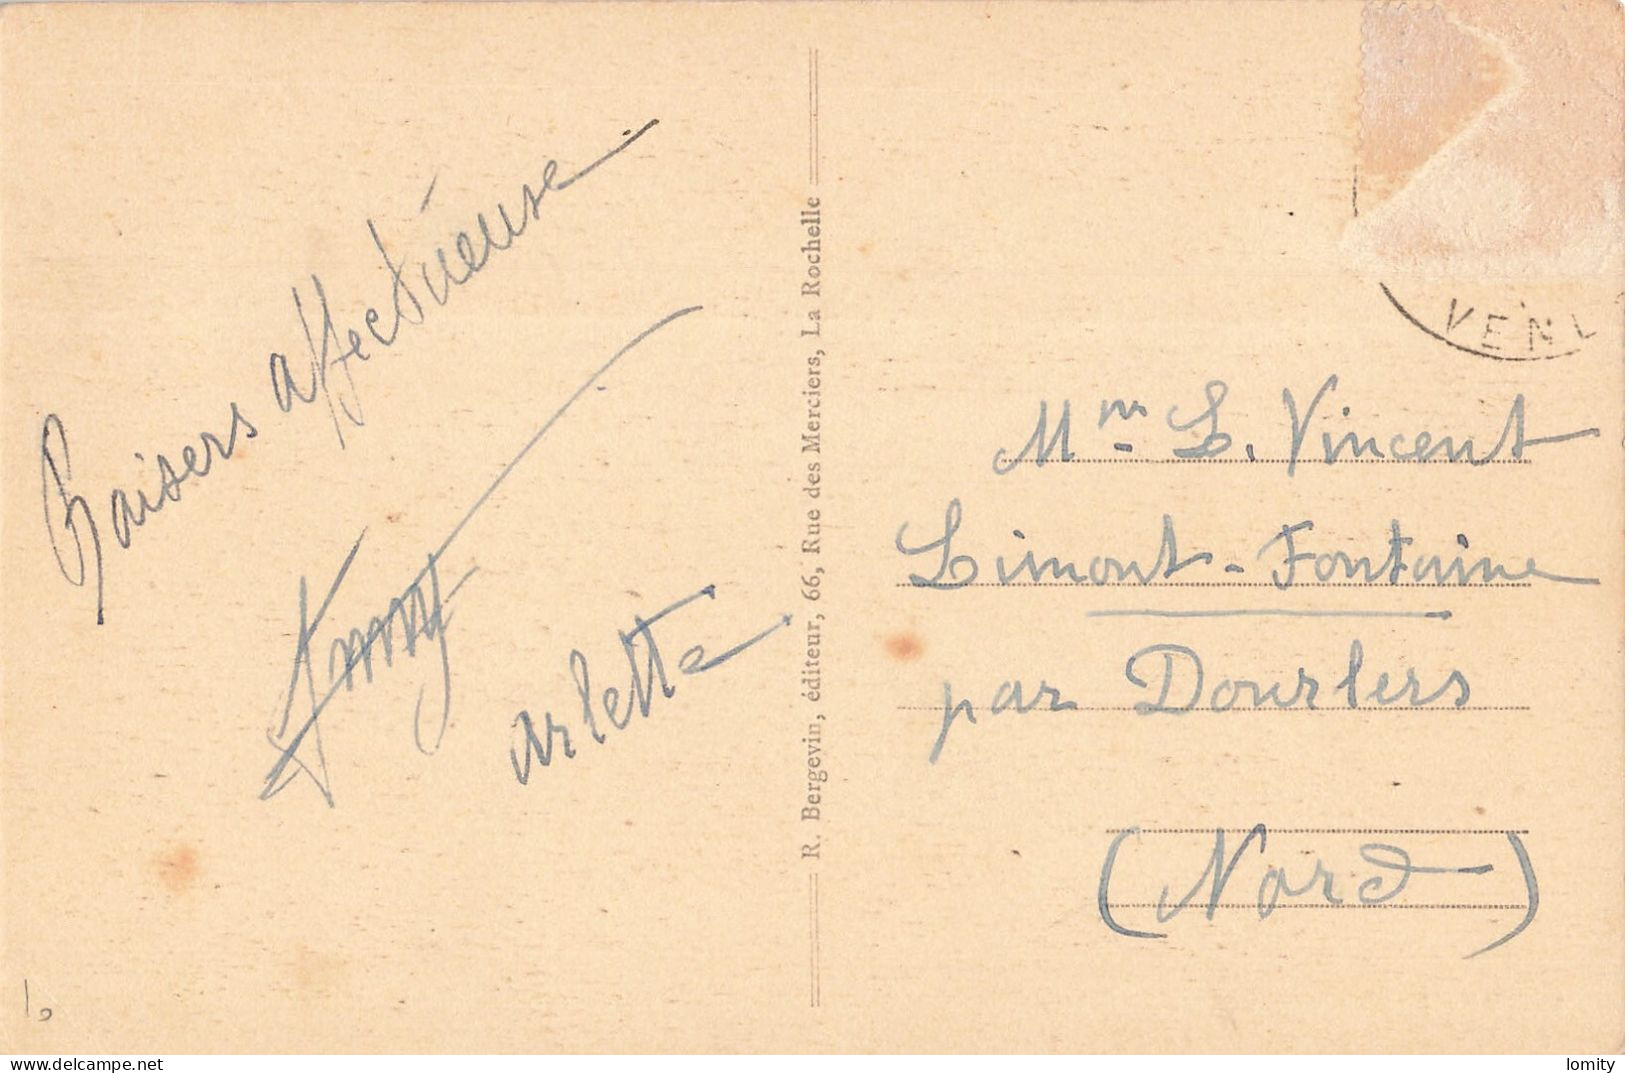 Baisers affectueuse
Jmmy
arlette
R. Bergevin, éditeur, 66, Rue des Merciers, La Rochelle
VEN
Mm L. Vincent
Limont-Fontaine
par Dourlers
(Nord)
10
delcampe.net
lomity